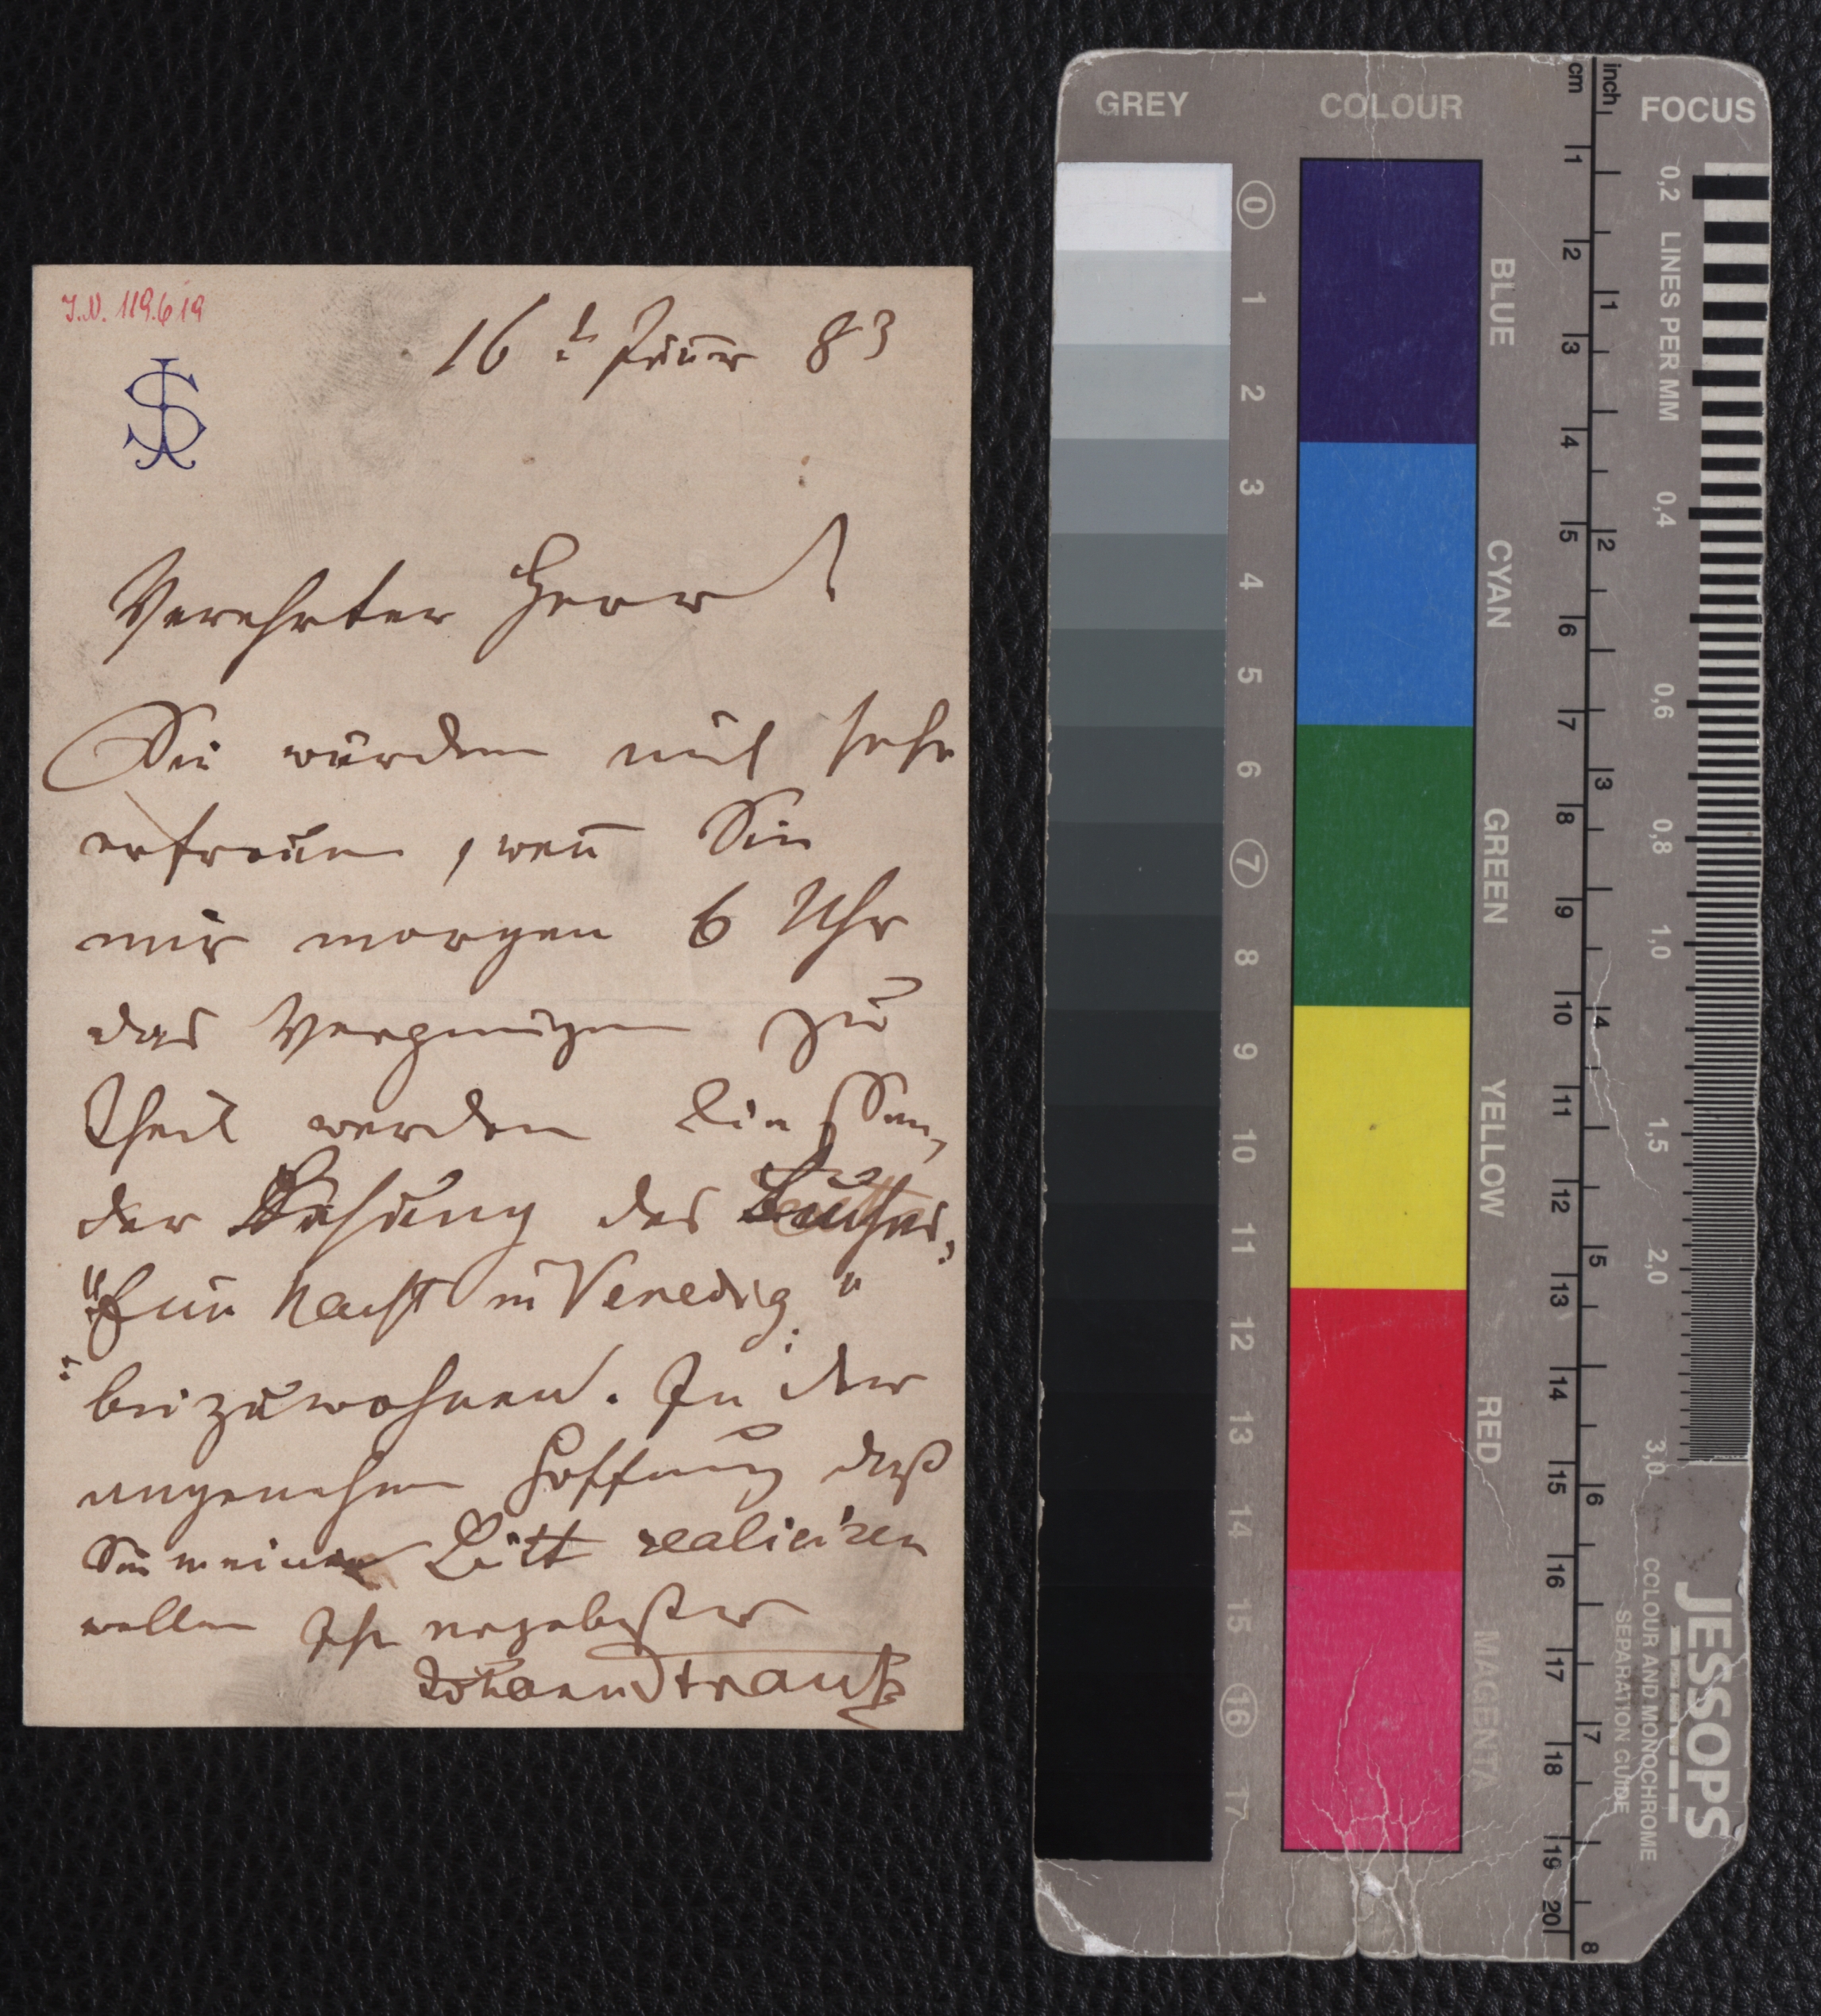 I.N. 119.619
JS
16t Jänner 83
Verehrter Herr!
Sie würden mich sehr
erfreuen, wenn̄ Sie
mir morgen 6 Uhr
das Vergnügen zu
Theil werden ließen,
der Lesung des Buches,
"Eine Nacht in Venedig"
beizuwohnen. In der
angenehmen Hoffnung daß
Sie meine Bitt realisiren
wollen Ihr ergebenster
Johann Strauß
GREY
COLOUR
FOCUS
cm
inch
0 1 2 3 4 5 6 7 8 9 10 11 12 13 14 15 16 17
BLUE
CYAN
GREEN
YELLOW
RED
MAGENTA
1 2 3 4 5 6 7 8 9 10 11 12 13 14 15 16 17 18 19 20
1 2 3 4 5 6 7 8
0,2 LINES PER MM 0,4 0,6 0,8 1,0 1,5 2,0 3,0
JESSOPS
COLOUR AND MONOCHROME
SEPARATION GUIDE